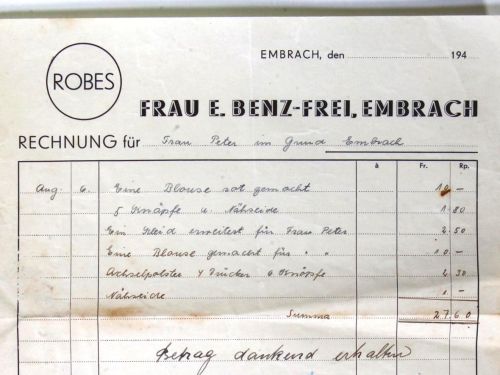 EMBRACH, den 194
ROBES
FRAU E. BENZ-FREI, EMBRACH
RECHNUNG für Frau Peter im Grund Embrach
à Fr. Rp.
Aug. 6. Eine Blouse rot gemacht 10 –
5 Knöpfe u. Nähseide 1 80
Ein Kleid erweitert für Frau Peter 2 50
Eine Blouse gemacht für " " 10 –
Achselpolster 4 Drücker 6 Knöpfe 2 30
Nähseide 1 –
Summa 27 60
Betrag dankend erhalten